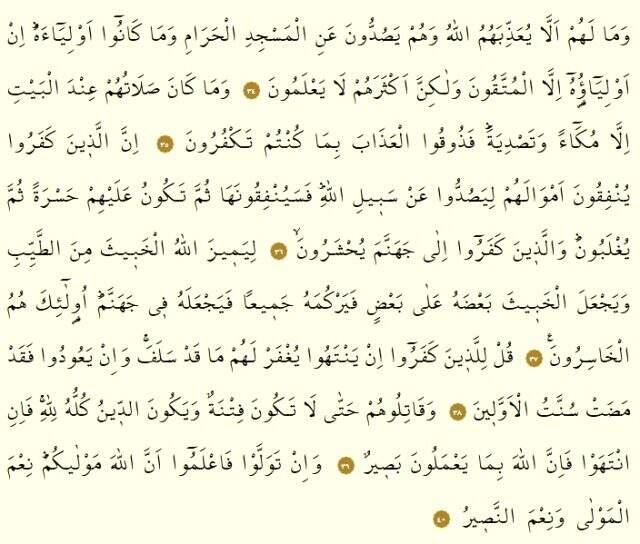 وَمَا لَهُمْ اَلَّا يُعَذِّبَهُمُ اللّٰهُ وَهُمْ يَصُدُّونَ عَنِ الْمَسْجِدِ الْحَرَامِ وَمَا كَانُٓوا اَوْلِيَٓاءَهُۜ اِنْ
اَوْلِيَٓاؤُ۬هُٓ اِلَّا الْمُتَّقُونَ وَلٰكِنَّ اَكْثَرَهُمْ لَا يَعْلَمُونَ ﴿٣٤﴾ وَمَا كَانَ صَلَاتُهُمْ عِنْدَ الْبَيْتِ
اِلَّا مُكَٓاءً وَتَصْدِيَةًۜ فَذُوقُوا الْعَذَابَ بِمَا كُنْتُمْ تَكْفُرُونَ ﴿٣٥﴾ اِنَّ الَّذ۪ينَ كَفَرُوا
يُنْفِقُونَ اَمْوَالَهُمْ لِيَصُدُّوا عَنْ سَب۪يلِ اللّٰهِۜ فَسَيُنْفِقُونَهَا ثُمَّ تَكُونُ عَلَيْهِمْ حَسْرَةً ثُمَّ
يُغْلَبُونَۜ وَالَّذ۪ينَ كَفَرُٓوا اِلٰى جَهَنَّمَ يُحْشَرُونَۙ ﴿٣٦﴾ لِيَم۪يزَ اللّٰهُ الْخَب۪يثَ مِنَ الطَّيِّبِ
وَيَجْعَلَ الْخَب۪يثَ بَعْضَهُ عَلٰى بَعْضٍ فَيَرْكُمَهُ جَم۪يعًا فَيَجْعَلَهُ ف۪ي جَهَنَّمَۜ اُو۬لٰٓئِكَ هُمُ
الْخَاسِرُونَ۟ ﴿٣٧﴾ قُلْ لِلَّذ۪ينَ كَفَرُٓوا اِنْ يَنْتَهُوا يُغْفَرْ لَهُمْ مَا قَدْ سَلَفَۚ وَاِنْ يَعُودُوا فَقَدْ
مَضَتْ سُنَّتُ الْاَوَّل۪ينَ ﴿٣٨﴾ وَقَاتِلُوهُمْ حَتّٰى لَا تَكُونَ فِتْنَةٌ وَيَكُونَ الدّ۪ينُ كُلُّهُ لِلّٰهِۚ فَاِنِ
انْتَهَوْا فَاِنَّ اللّٰهَ بِمَا يَعْمَلُونَ بَص۪يرٌ ﴿٣٩﴾ وَاِنْ تَوَلَّوْا فَاعْلَمُٓوا اَنَّ اللّٰهَ مَوْلٰيكُمْۜ نِعْمَ
الْمَوْلٰى وَنِعْمَ النَّص۪يرُ ﴿٤٠﴾